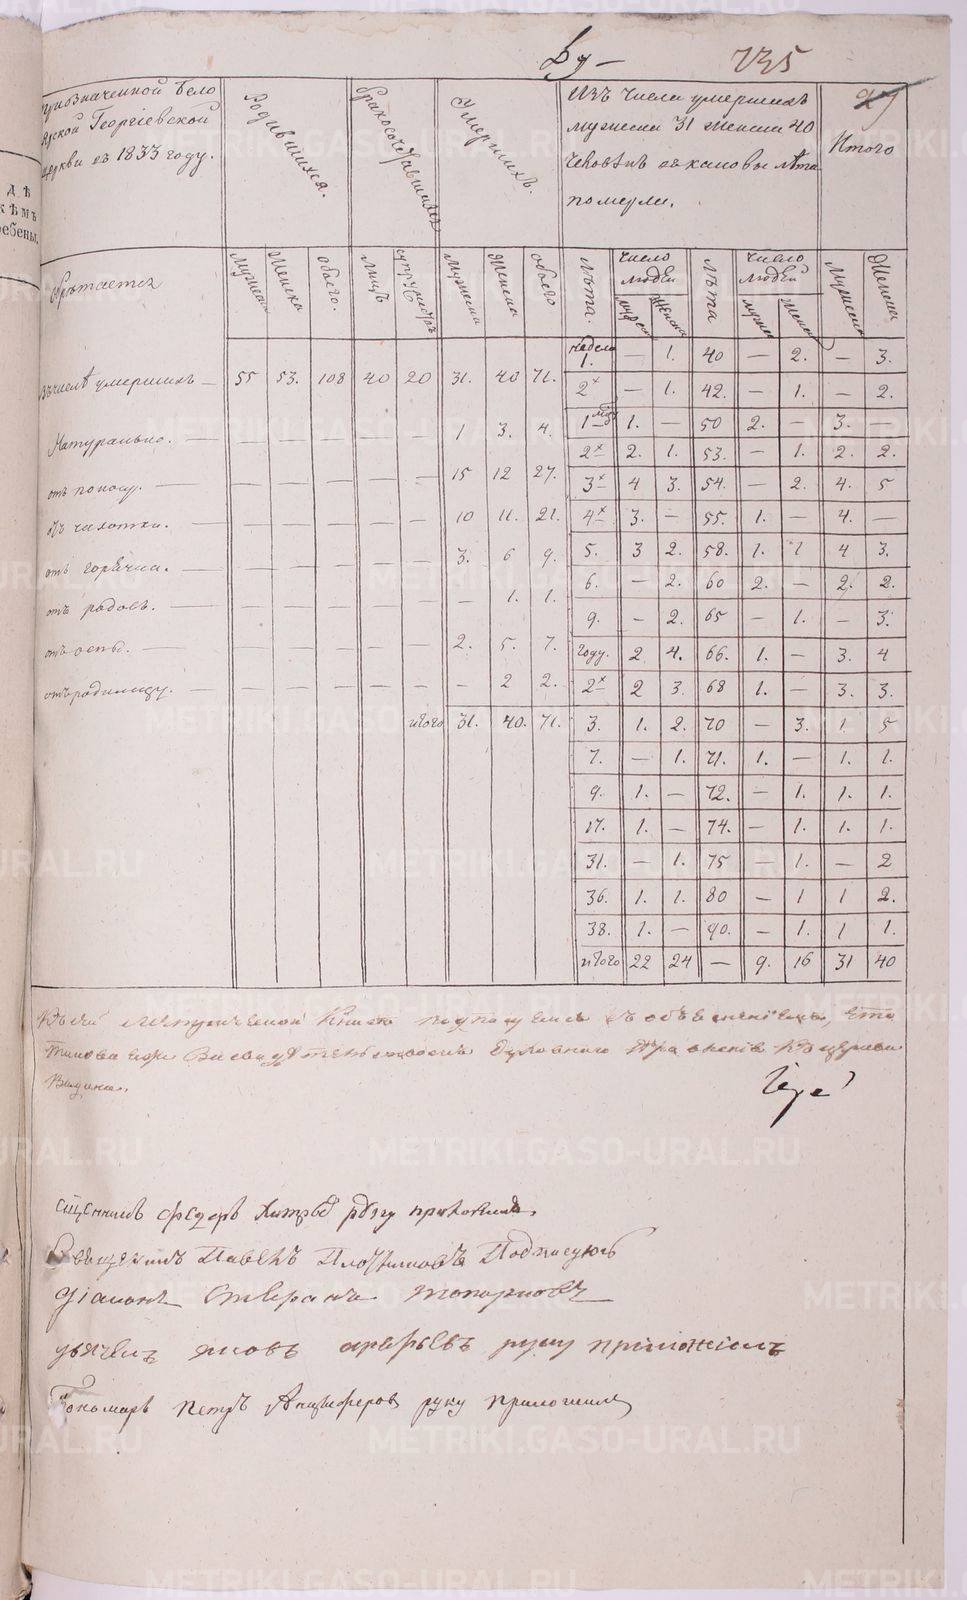 735
29
при означенной Бело
ярской Георгіевской
церкви въ 1833 году.
Родившихся.
бракосочетавшихся
Умершихъ.
Изъ числа умершихъ
мужеска 31 женска 40
человѣкъ въ каковы лѣта
померли.
Итого
дѣ
кѣмъ
ребены.
обрѣтается
мужеска
женска
обоего.
лицъ
супружествъ
мужеска
женска
обоего
лѣта.
число людей
мужска
женска
лѣта
число людей
мужска
женска
мужеска
женска
въ числѣ умершихъ — 55 53. 108 40 20 31. 40 71.
Натурально. — — — — — — 1 3. 4.
отъ поносу. — — — — — — 15 12 27.
отъ чахотки. — — — — — — 10 11. 21.
отъ горячки. — — — — — — 3. 6 9.
отъ родовъ. — — — — — — — 1. 1.
отъ оспы. — — — — — — 2. 5. 7.
отъ родимцу. — — — — — — — 2 2.
итого 31. 40. 71.
недели 1. — 1. 40 — 2. — 3.
2х — 1. 42. — 1. — 2.
1 мѣс 1. — 50 2. — 3.
2х 2. 1. 53. — 1. 2. 2.
3х 4 3. 54. — 2. 4. 5
4х 3. — 55. 1. — 4. —
5. 3 2. 58. 1. 1 4 3.
6. — 2. 60 2. — 2. 2.
9. — 2. 65 — 1. — 3.
году. 2 4. 66. 1. — 3. 4
2х 2 3. 68 1. — 3. 3.
3. 1. 2. 70 — 3. 1. 5
7. — 1. 71. 1. — 1. 1.
9. 1. — 72. — 1. 1. 1.
17. 1. — 74. — 1. 1. 1.
31. — 1. 75 — 1. — 2
36. 1. 1. 80 — 1 1 2.
38. 1. — 90. — 1. 1 1.
итого 22 24 — 9. 16 31 40
Къ сей метрической книге подпоручикъ съ объясненіемъ, что
Духовнаго Правленія
Священникъ Павелъ Плотниковъ Подписуюсь
діаконъ Стефанъ Топорковъ
яковъ арефьевъ руку приложилъ
Пономарь Петръ Анциферовъ руку приложилъ
METRIKI.GASO-URAL.RU